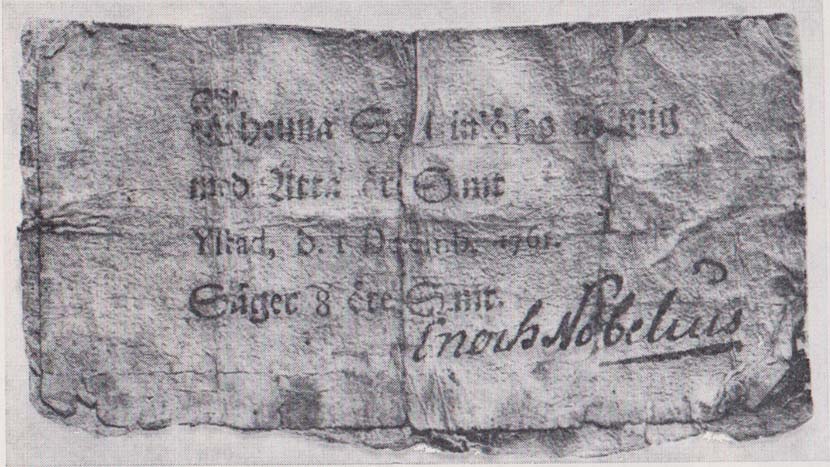 Denna Sedel inlöses af mig
med Åtta öre S:mt
Ystad, d. 1 Decemb. 1761.
Säger 8 öre S:mt.
Enoch Nobelius